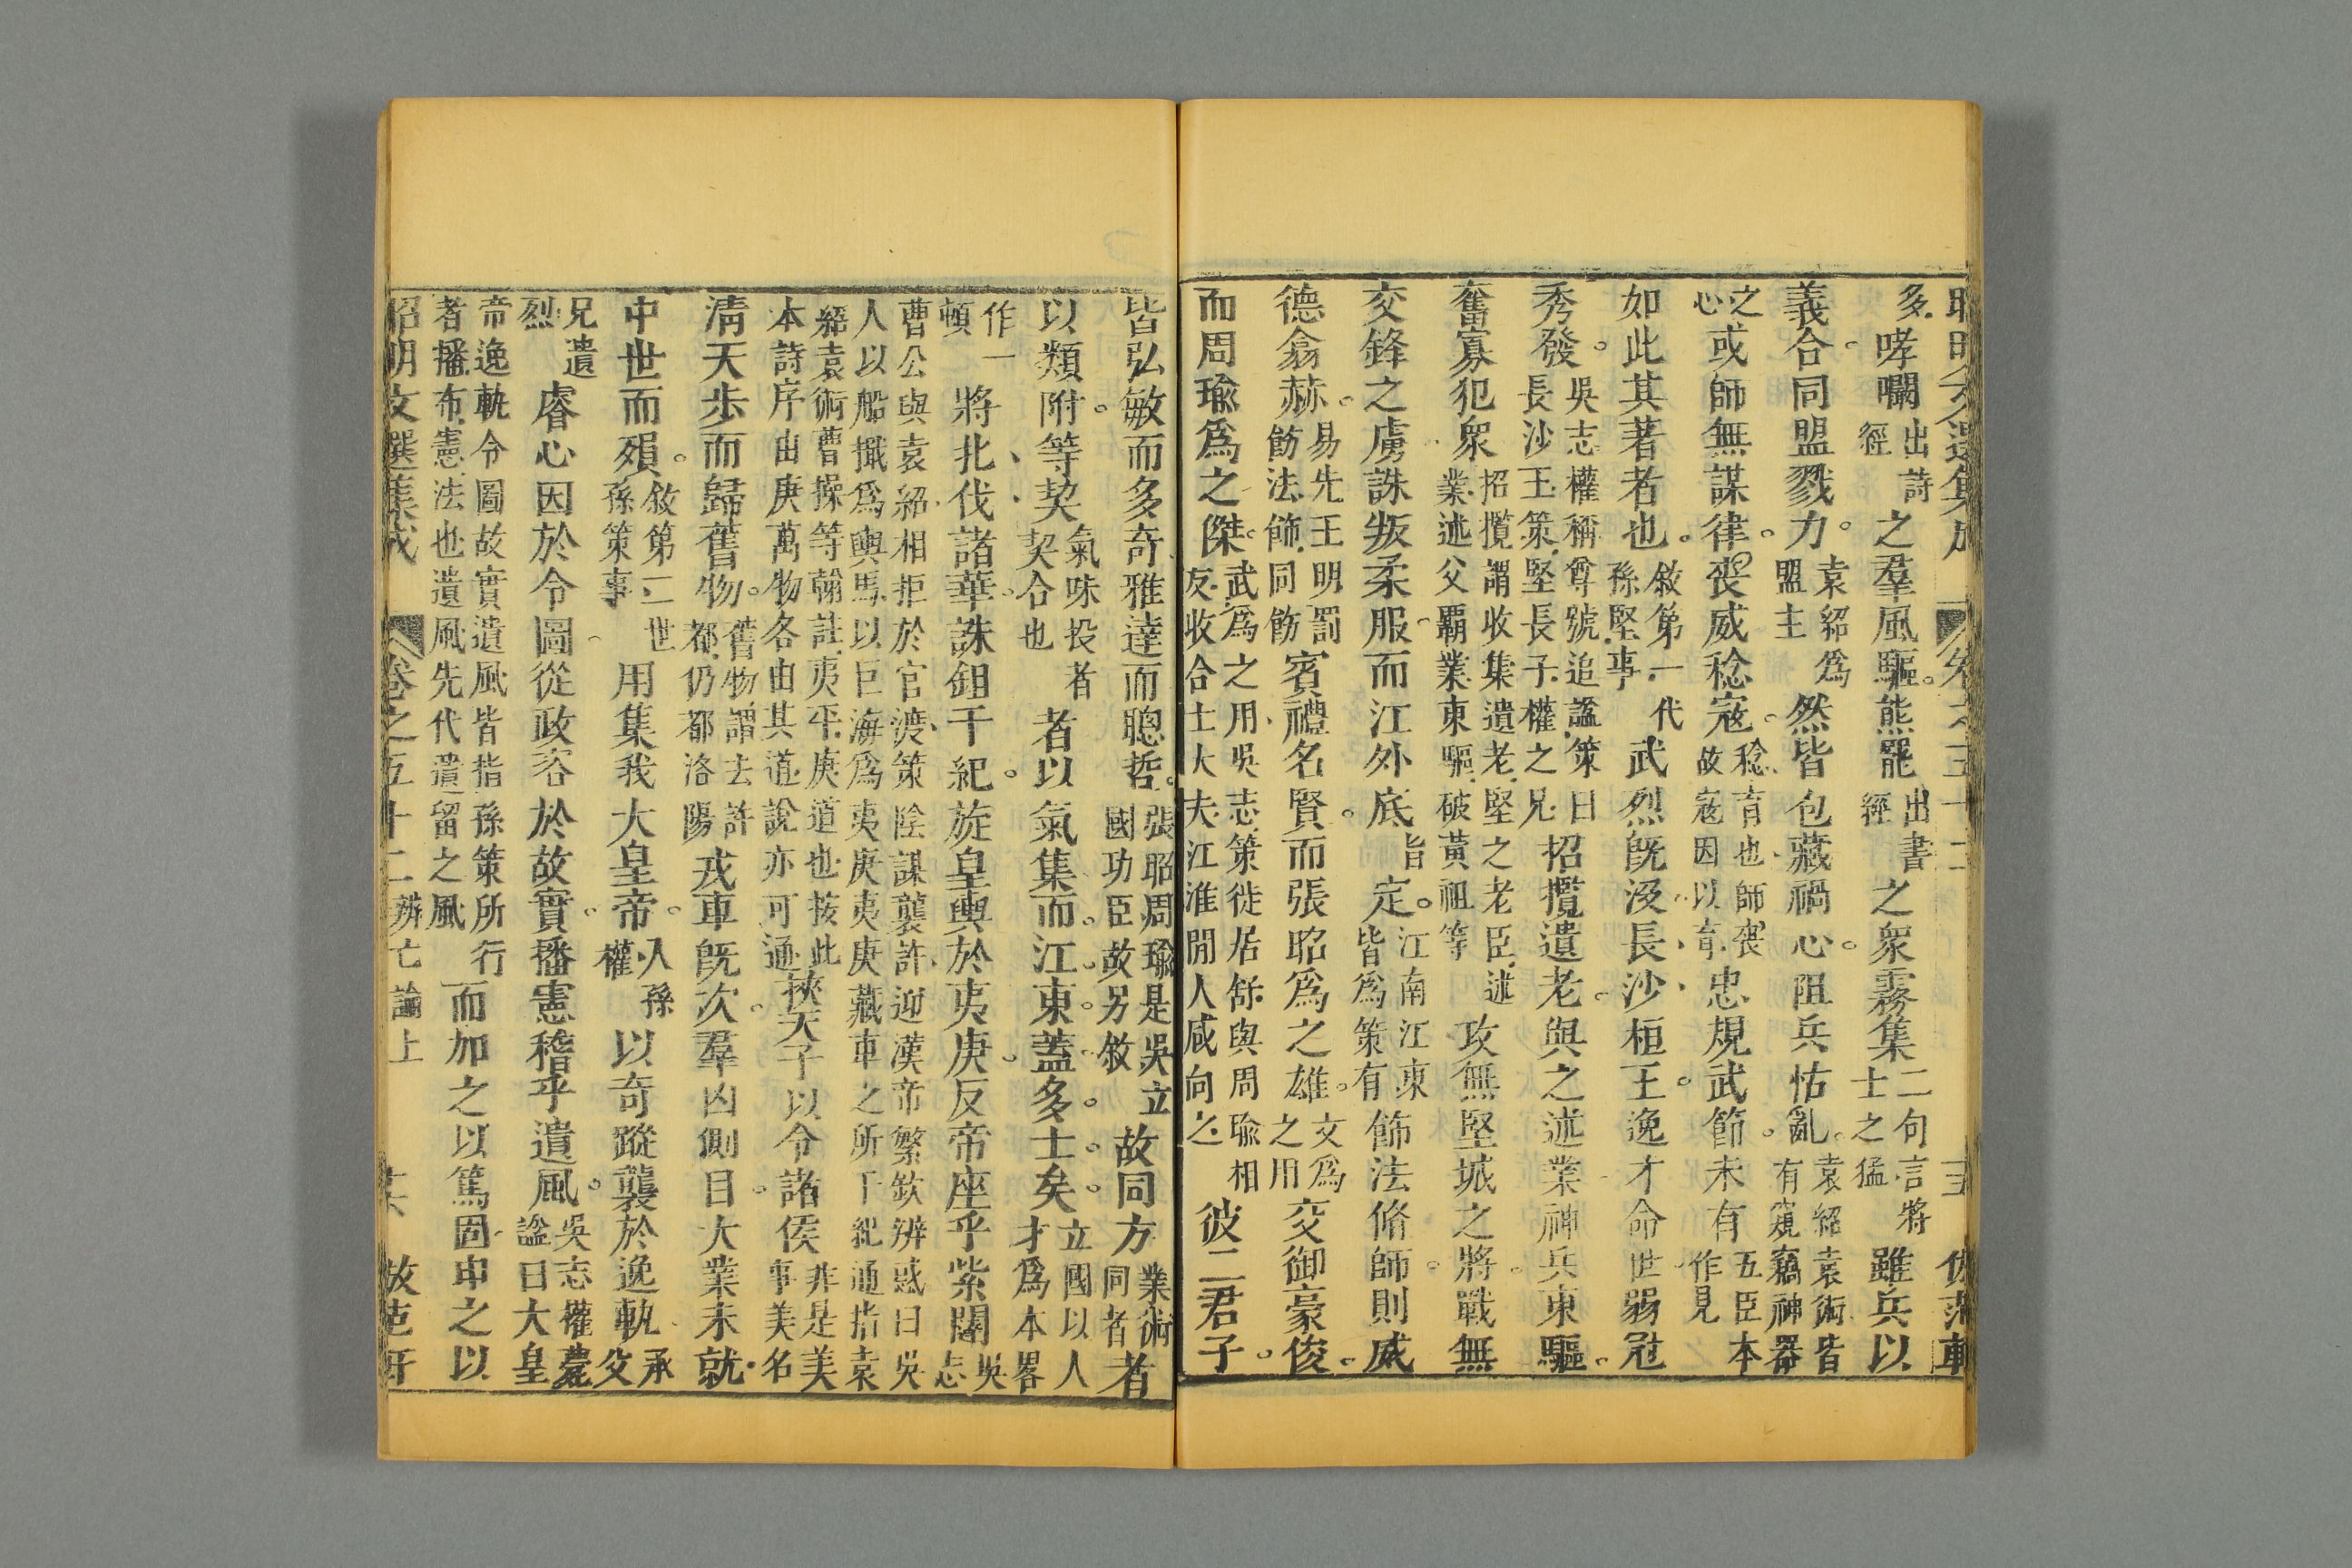 昭明文選集成 卷之五十二 三 倣范軒
多哮闞出詩經之羣風驅熊羆出書經之衆霧集二句言將士之猛雖兵以
義合同盟戮力袁紹爲盟主然皆包藏禍心阻兵怙亂袁紹袁術皆有窺竊神器
之心或師無謀律喪威稔寇稔育也師喪故寇因以育忠規武節未有五臣本作見
如此其著者也敘第一代孫堅事武烈旣沒長沙桓王逸才命世弱冠
秀發吳志權稱尊號追諡策曰長沙王策堅長子權之兄招攬遺老與之述業神兵東驅
奮寡犯衆招攬謂收集遺老堅之老臣述業述父覇業東驅破黃祖等攻無堅城之將戰無
交鋒之虜誅叛柔服而江外底旨定江南江東皆爲策有飾法脩師則威
德翕赫易先王明罰飭法飾同飭賓禮名賢而張昭爲之雄文爲之用交御豪俊
而周瑜爲之傑武爲之用吳志策徙居舒與周瑜相友收合士大夫江淮閒人咸向之彼二君子
皆弘敏而多奇雅達而聰哲張昭周瑜是吳立國功臣故另敘故同方業術同者者
以類附等契氣味投者契合也者以氣集而江東蓋多士矣立國以人才爲本畧
作一頓將北伐諸華誅鉏干紀旋皇輿於夷庚反帝座乎紫闥吳志
曹公與袁紹相拒於官渡策陰謀襲許迎漢帝繁欽辨惑曰吳人以船檝爲輿馬以巨海爲夷庚夷庚藏車之所干紀通指袁
紹袁術曹操等翰註夷平庚道也按此本詩序由庚萬物各由其道說亦可通挾天子以令諸侯非是美事美名
淸天步而歸舊物舊物謂去許都仍都洛陽戎車旣次羣凶側目大業未就
中世而殞敘第二世孫策事用集我大皇帝入孫權以奇蹤襲於逸軌承父
兄遺烈睿心因於令圖從政容於故實播憲稽乎遺風吳志權薨諡曰大皇
帝逸軌令圖故實遺風皆指孫策所行者播布憲法也遺風先代遺留之風而加之以篤固申之以
昭明文選集成 卷之五十二 辨亡論上